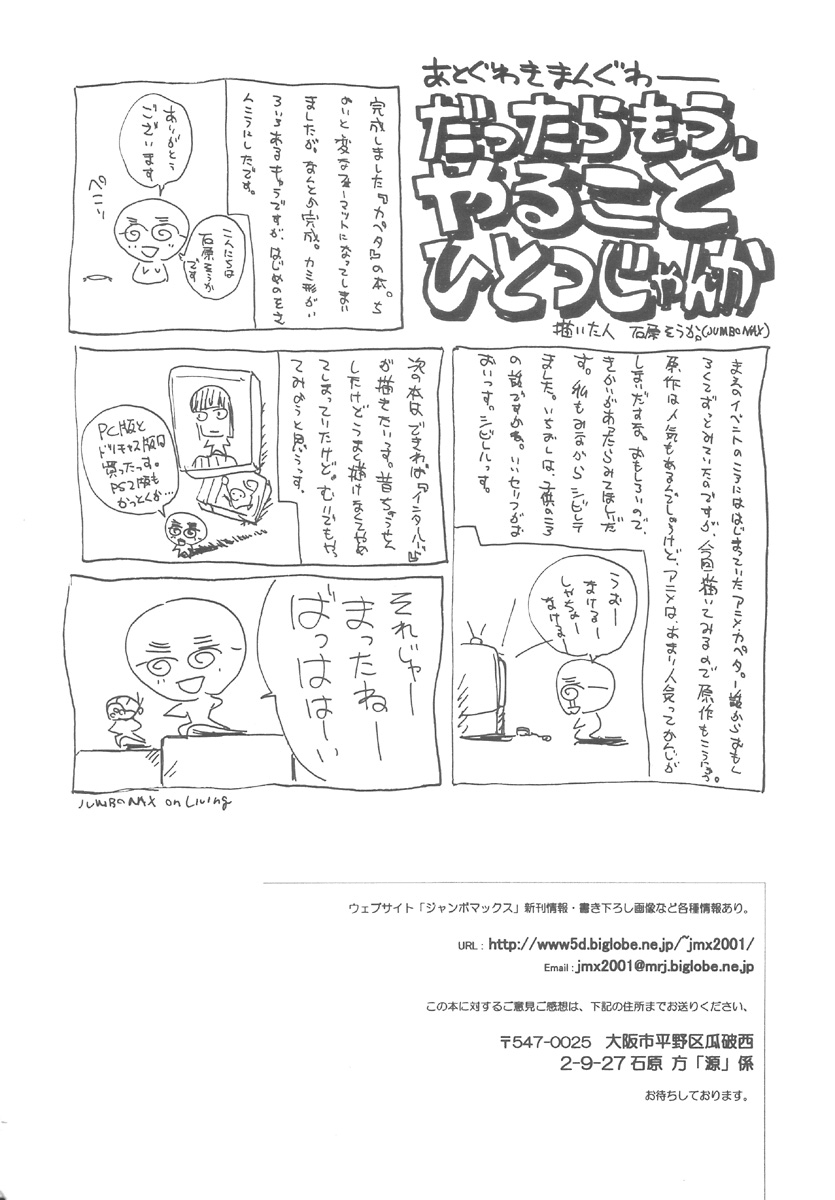 あとぐわきまんぐわー
だったらもう、
やること
ひとつじゃんか
描いた人 石原そうか。(JUMBOMAX)
完成しました『カペタ』の本。ち
ょいと変なフォーマットになってしまい
ましたが。なんとか完成。カミ形がい
ろいろあるキャラですが、はじめのモサ
いこうにしたです。
ありがとう
ございます
こんにちは
石原そうか
です
ペこーり
まえのイベントのころにははじまっていたアニメ・カペタ。一話からおもし
ろくてずっとみていたのですが、今回描いてみるので原作もこうにゅう。
原作は人気もあるんでしょうけど、アニメは、あまり人気ってかんじが
しまいだすな。おもしろいので、
きかいがあったらみてほしいだ
す。私もみながらシビレテ
ました。いちおしは、子供のころ
の話ですかね。いいセリフがお
おいっす。シビレルっす。
うおー
まけるー
しゃちょー
なけるー
次の本は、できれば『インタールード』
が描きたいっす。昔ちょうせん
したけどうまく描けなくてやめ
てしまっていたけど。むりでもやっ
てみようと思うっす。
PC版と
ドリキャス版は
買ったっす。
PS2版も
かっとくか…
それじゃー
まったねー
ばっははーい
JUMBOMAX on Living
ウェブサイト「ジャンボマックス」新刊情報・書き下ろし画像など各種情報あり。
URL : http://www5d.biglobe.ne.jp/~jmx2001/
Email : jmx2001@mrj.biglobe.ne.jp
この本に対するご意見ご感想は、下記の住所までお送りください、
〒547-0025 大阪市平野区瓜破西
2-9-27 石原 方「源」係
お待ちしております。